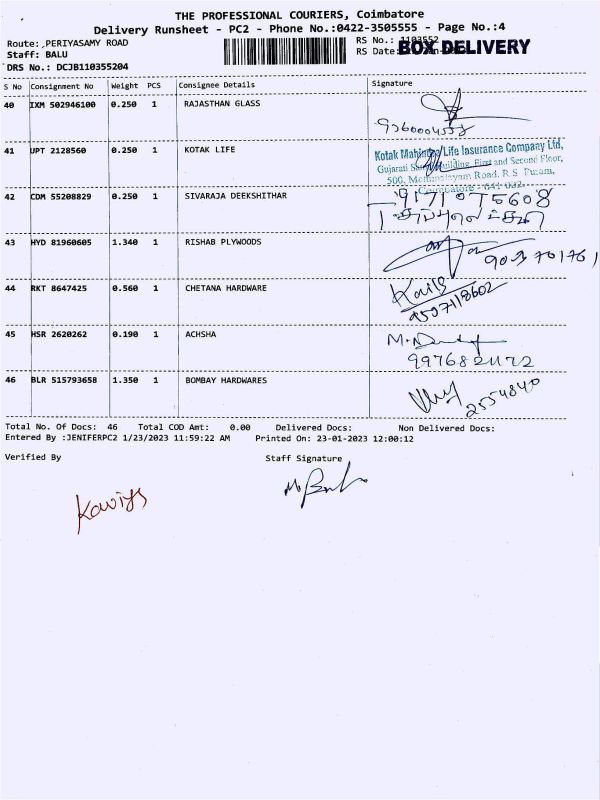 THE PROFESSIONAL COURIERS, Coimbatore
Delivery Runsheet - PC2 - Phone No.:0422-3505555 - Page No.:4
Route: PERIYASAMY ROAD RS No.: 1103552
Staff: BALU RS Date: BOX DELIVERY
DRS No.: DCJB110355204
S No Consignment No Weight PCS Consignee Details Signature
40 IXM 502946100 0.250 1 RAJASTHAN GLASS
41 UPT 2128560 0.250 1 KOTAK LIFE
Kotak Mahindra Life Insurance Company Ltd,
Gujarati Building, First and Second Floor,
Road, R.S Puram,
Coimbatore - 641 002.
42 CDM 55208829 0.250 1 SIVARAJA DEEKSHITHAR
9171075608
43 HYD 81960605 1.340 1 RISHAB PLYWOODS
44 RKT 8647425 0.560 1 CHETANA HARDWARE
9507118602
45 HSR 2620262 0.190 1 ACHSHA
46 BLR 515793658 1.350 1 BOMBAY HARDWARES
2554840
Total No. Of Docs: 46 Total COD Amt: 0.00 Delivered Docs: Non Delivered Docs:
Entered By :JENIFERPC2 1/23/2023 11:59:22 AM Printed On: 23-01-2023 12:00:12
Verified By Staff Signature